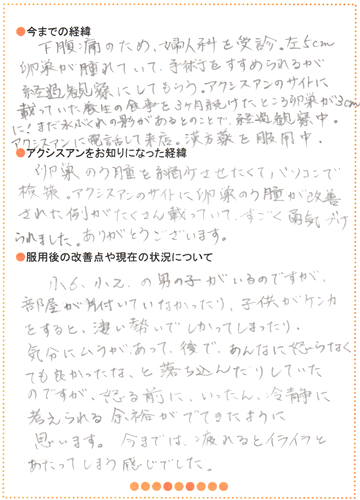 ●今までの経緯
下腹痛のため、婦人科を受診。左5cm
卵巣が腫れていて、手術をすすめられるが
経過観察にしてもらう。アクシスアンのサイトに
載っていた養生の食事を3ヶ月続けたところ卵巣が3cm
に!まだ水ぶくれの影があるとのことで、経過観察中。
アクシスアンに電話して来店。漢方薬を服用中.
●アクシスアンをお知りになった経緯
卵巣のう腫を
させたくてパソコンで
検索。アクシスアンのサイトに卵巣のう腫が改善
された例がたくさん載っていて、すごく勇気づけ
られました。ありがとうございます。
●服用後の改善点や現在の状況について
小6、小2、の男の子がいるのですが、
部屋が片付いていなかったり、子供がケンカ
をすると、凄い勢いでしかってしまったり.
気分にムラがあって、後で、あんなに怒らなく
ても良かったな、と落ち込んだりしていた
のですが、怒る前に、いったん、冷静に
考えられる余裕がでてきたように
思います。今までは、疲れるとイライラと
あたってしまう感じでした。